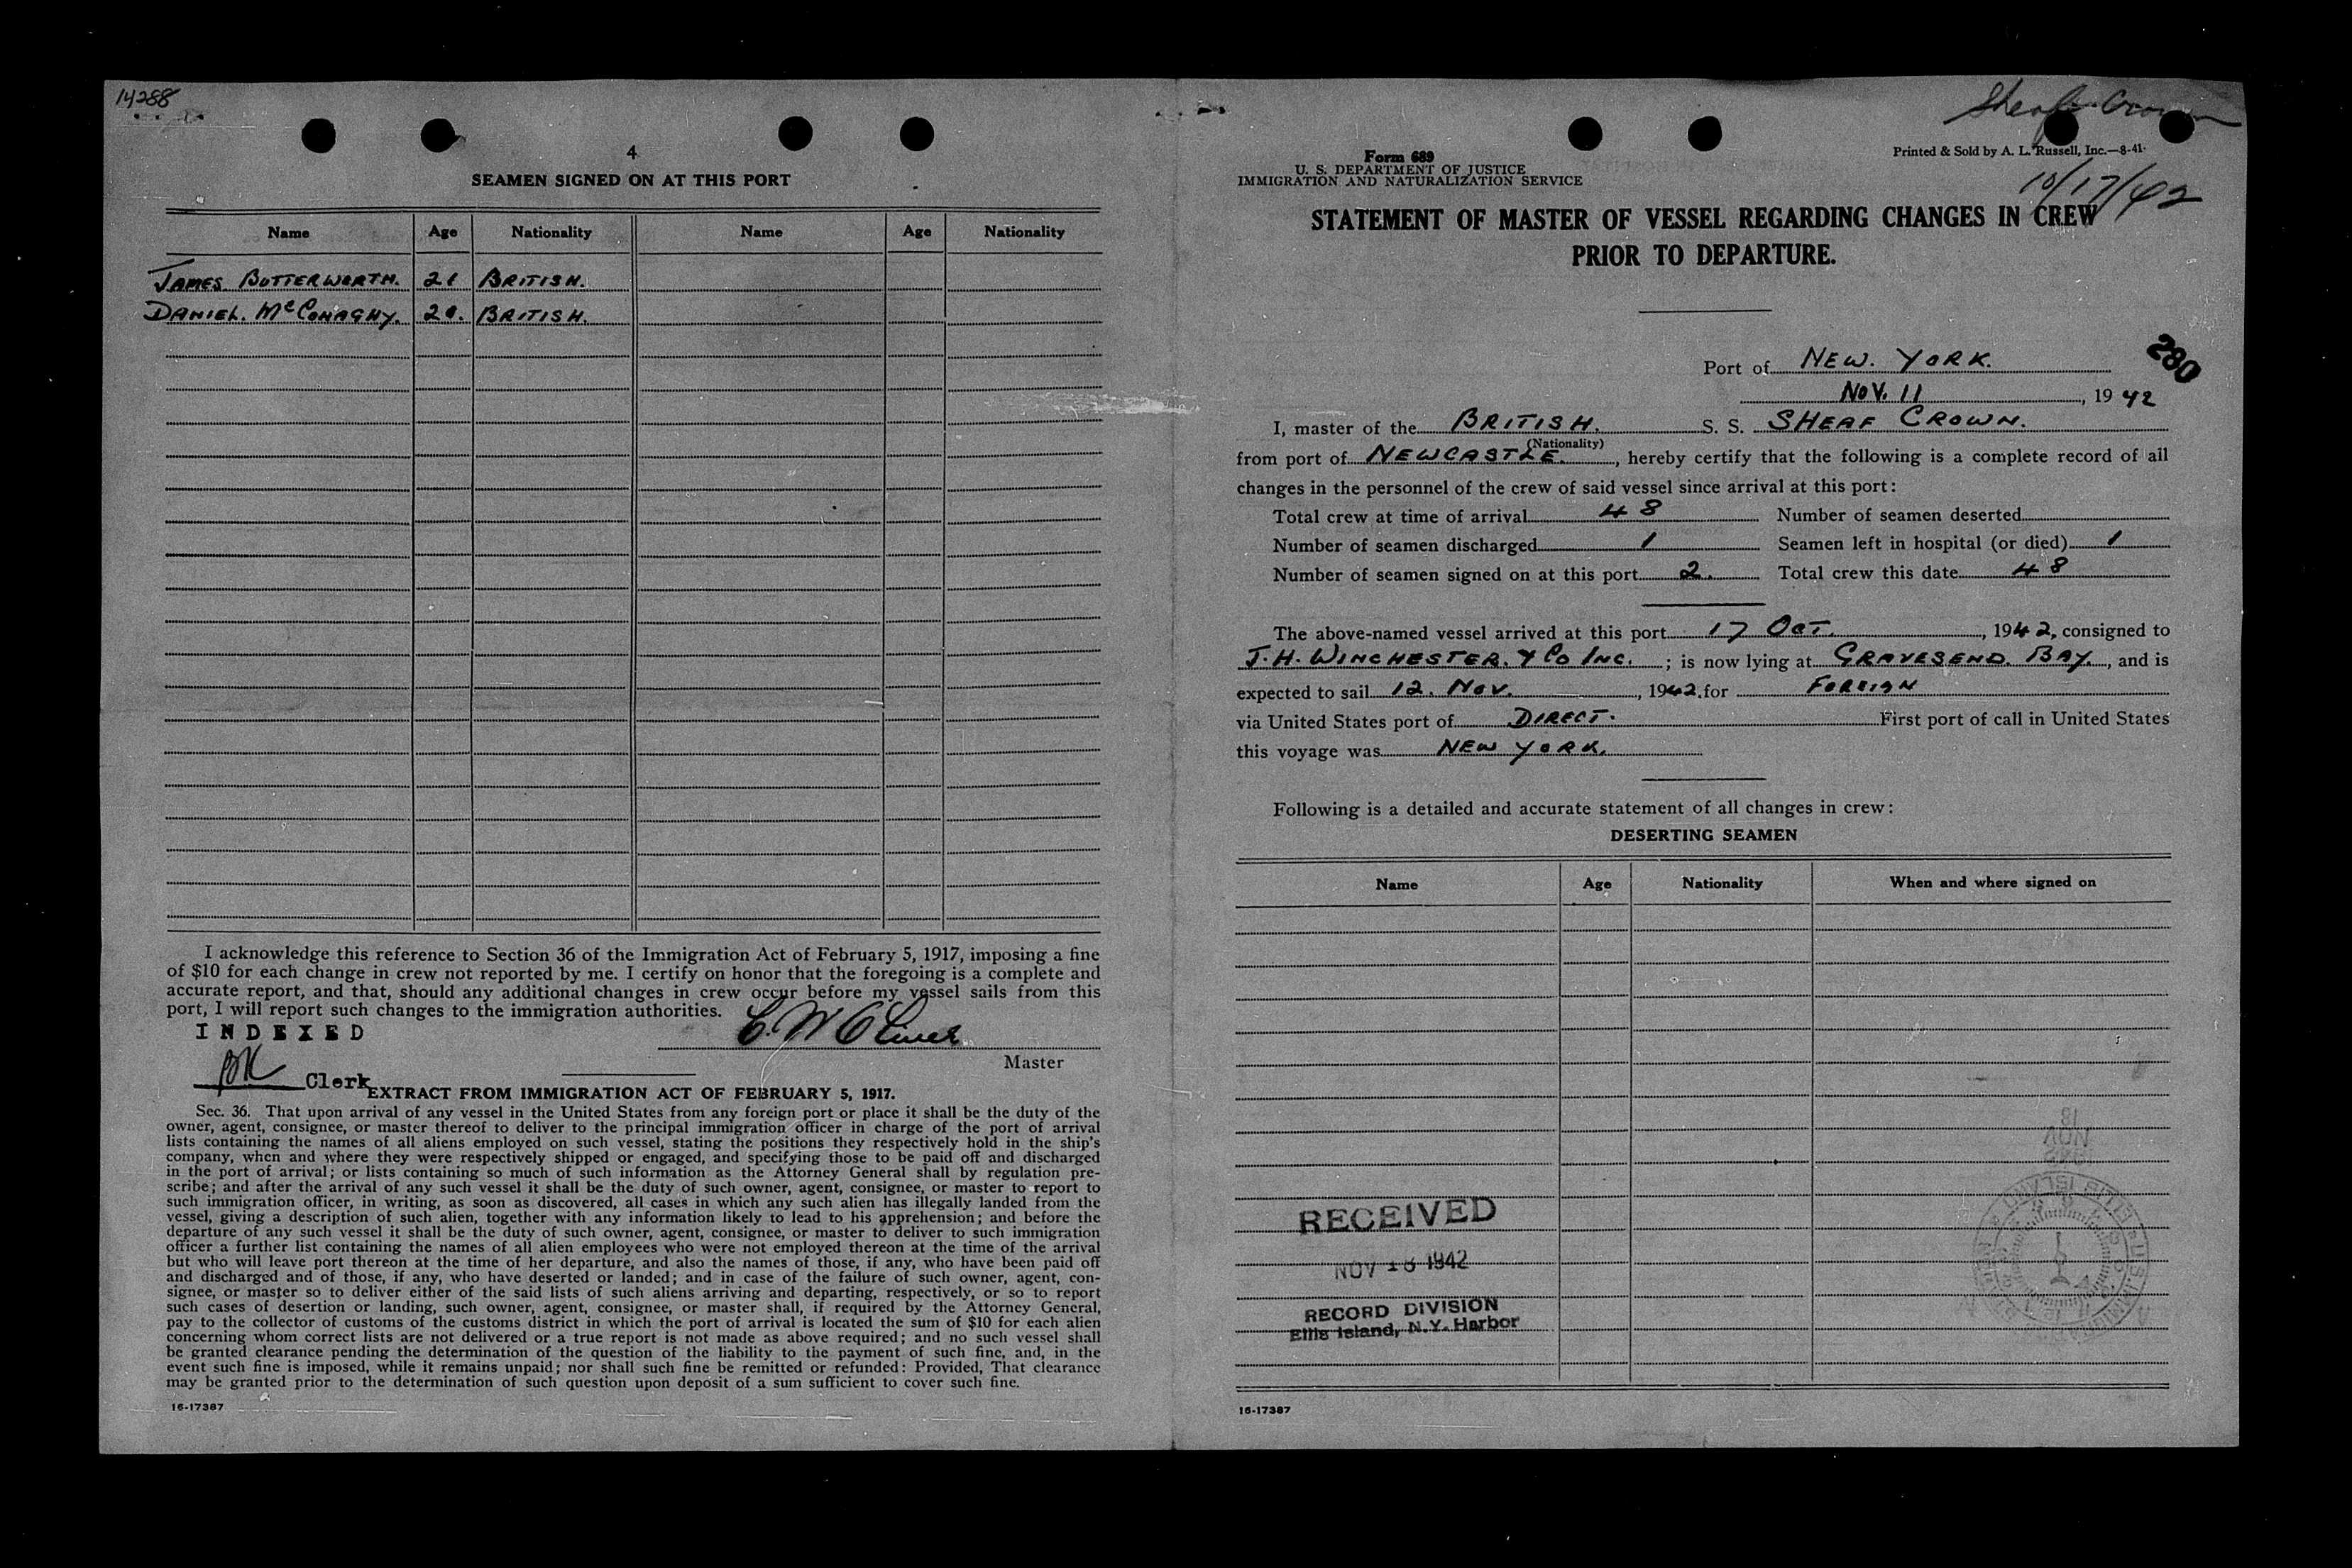 14288
4
SEAMEN SIGNED ON AT THIS PORT
Name Age Nationality Name Age Nationality
JAMES BUTTERWORTH. 21 BRITISH.
DANIEL. McCONAGHY. 20. BRITISH.
I acknowledge this reference to Section 36 of the Immigration Act of February 5, 1917, imposing a fine
of $10 for each change in crew not reported by me. I certify on honor that the foregoing is a complete and
accurate report, and that, should any additional changes in crew occur before my vessel sails from this
port, I will report such changes to the immigration authorities.
INDEXED
C. W. Oliver
Master
BK Clerk
EXTRACT FROM IMMIGRATION ACT OF FEBRUARY 5, 1917.
Sec. 36. That upon arrival of any vessel in the United States from any foreign port or place it shall be the duty of the
owner, agent, consignee, or master thereof to deliver to the principal immigration officer in charge of the port of arrival
lists containing the names of all aliens employed on such vessel, stating the positions they respectively hold in the ship's
company, when and where they were respectively shipped or engaged, and specifying those to be paid off and discharged
in the port of arrival; or lists containing so much of such information as the Attorney General shall by regulation pre-
scribe; and after the arrival of any such vessel it shall be the duty of such owner, agent, consignee, or master to report to
such immigration officer, in writing, as soon as discovered, all cases in which any such alien has illegally landed from the
vessel, giving a description of such alien, together with any information likely to lead to his apprehension; and before the
departure of any such vessel it shall be the duty of such owner, agent, consignee, or master to deliver to such immigration
officer a further list containing the names of all alien employees who were not employed thereon at the time of the arrival
but who will leave port thereon at the time of her departure, and also the names of those, if any, who have been paid off
and discharged and of those, if any, who have deserted or landed; and in case of the failure of such owner, agent, con-
signee, or master so to deliver either of the said lists of such aliens arriving and departing, respectively, or so to report
such cases of desertion or landing, such owner, agent, consignee, or master shall, if required by the Attorney General,
pay to the collector of customs of the customs district in which the port of arrival is located the sum of $10 for each alien
concerning whom correct lists are not delivered or a true report is not made as above required; and no such vessel shall
be granted clearance pending the determination of the question of the liability to the payment of such fine, and, in the
event such fine is imposed, while it remains unpaid; nor shall such fine be remitted or refunded: Provided, That clearance
may be granted prior to the determination of such question upon deposit of a sum sufficient to cover such fine.
16-17387
Sheaf Crown
Form 689
U. S. DEPARTMENT OF JUSTICE
IMMIGRATION AND NATURALIZATION SERVICE
Printed & Sold by A. L. Russell, Inc.—8-41-
10/17/42
STATEMENT OF MASTER OF VESSEL REGARDING CHANGES IN CREW
PRIOR TO DEPARTURE.
280
Port of NEW. YORK.
NOV. 11, 1942
I, master of the BRITISH. S. S. SHEAF CROWN.
(Nationality)
from port of NEWCASTLE., hereby certify that the following is a complete record of all
changes in the personnel of the crew of said vessel since arrival at this port:
Total crew at time of arrival 48 Number of seamen deserted
Number of seamen discharged 1 Seamen left in hospital (or died) 1
Number of seamen signed on at this port 2. Total crew this date 48
The above-named vessel arrived at this port 17 OCT., 1942, consigned to
J. H. WINCHESTER. & CO INC.; is now lying at GRAVESEND. BAY., and is
expected to sail 12. NOV., 1942. for FOREIGN
via United States port of DIRECT. First port of call in United States
this voyage was NEW YORK.
Following is a detailed and accurate statement of all changes in crew:
DESERTING SEAMEN
Name Age Nationality When and where signed on
RECEIVED
NOV 18 1942
RECORD DIVISION
Ellis Island, N.Y. Harbor
16-17387